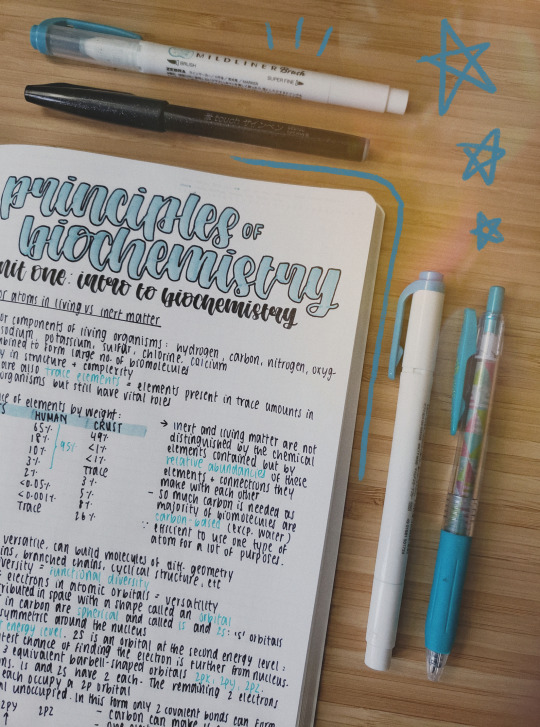 MILDLINER Brush
BRUSH
SUPER FINE
ZEBRA
principles OF
biochemistry
unit one: intro to biochemistry
or atoms in living vs inert matter
or components of living organisms: hydrogen, carbon, nitrogen, oxyg-
sodium, potassium, sulfur, chlorine, calcium
bined to form large no. of biomolecules
y in structure + complexity
are also trace elements = elements present in trace amounts in
organisms but still have vital roles
ce of elements by weight:
TS HUMAN CRUST
65% 49%
18% <1%
10% 95% <1%
3% <1%
2% Trace
<0.05% 3%
<0.001% 5%
Trace 8%
26%
→ inert and living matter are not
distinguished by the chemical
elements contained but by
relative abundancies of these
elements + connections they
make with each other
- so much carbon is needed as
majority of biomolecules are
carbon-based (excp. water)
∵ efficient to use one type of
atom for a lot of purposes.
versatile, can build molecules of diff. geometry
ins, branched chains, cyclical structure, etc
versity = functional diversity
electrons in atomic orbitals = versatility
tributed in space with a shape called an orbital
in carbon are spherical and called 1s and 2s: 's' orbitals
symmetric around the nucleus
t energy level. 2S is an orbital at the second energy level:
test chance of finding the electron is further from nucleus.
3 equivalent barbell-shaped orbitals 2px, 2py, 2pz.
ons. 1s and 2s have 2 each. The remaining 2 electrons
each occupy a 2p orbital
al unoccupied. In this form only 2 covalent bonds can form
2py 2pz
- carbon can make